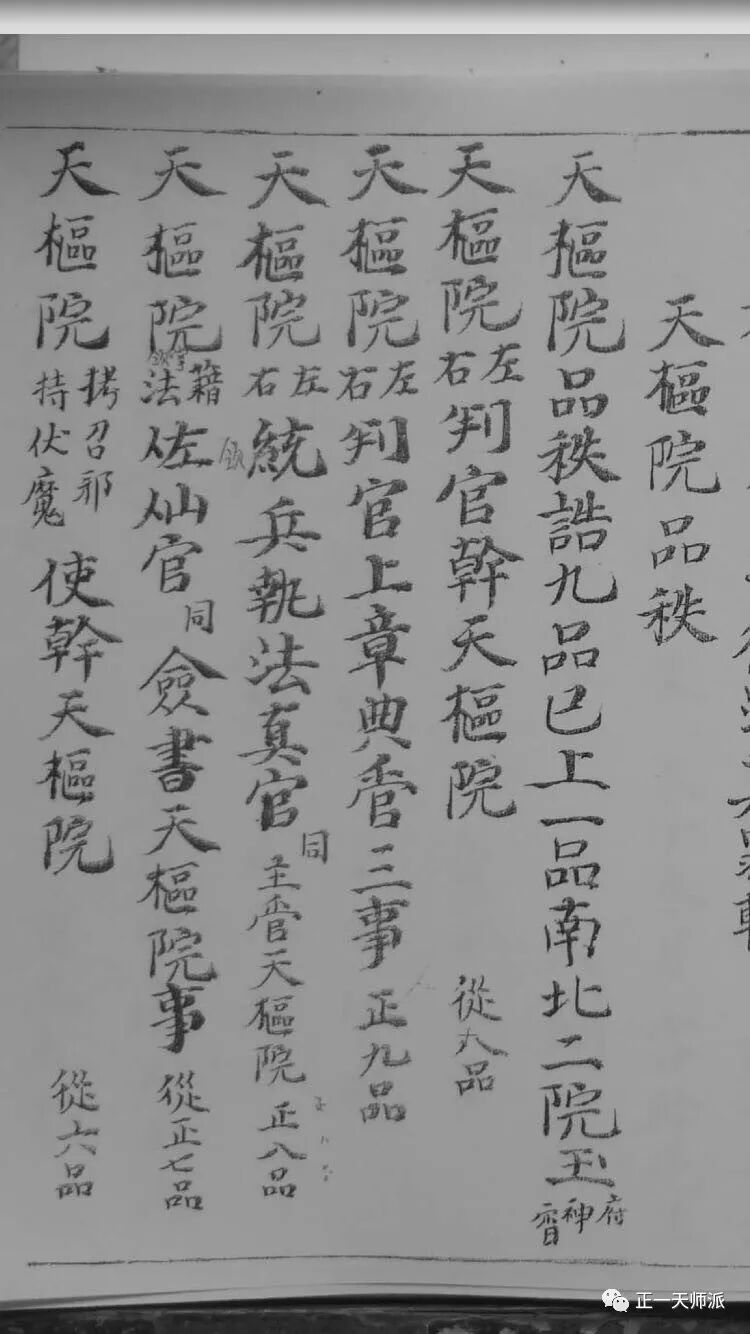 天樞院品秩
天樞院品秩誥九品已上一品南北二院玉府神霄
天樞院左右判官幹天樞院 從八品
天樞院左右判官上章典香三事 正九品
天樞院左右統兵執法真官同主管天樞院 正八品
天樞院籙法佐仙官同僉書天樞院事 從正七品
天樞院拷召邪持伏魔使幹天樞院 從六品
正一天师派